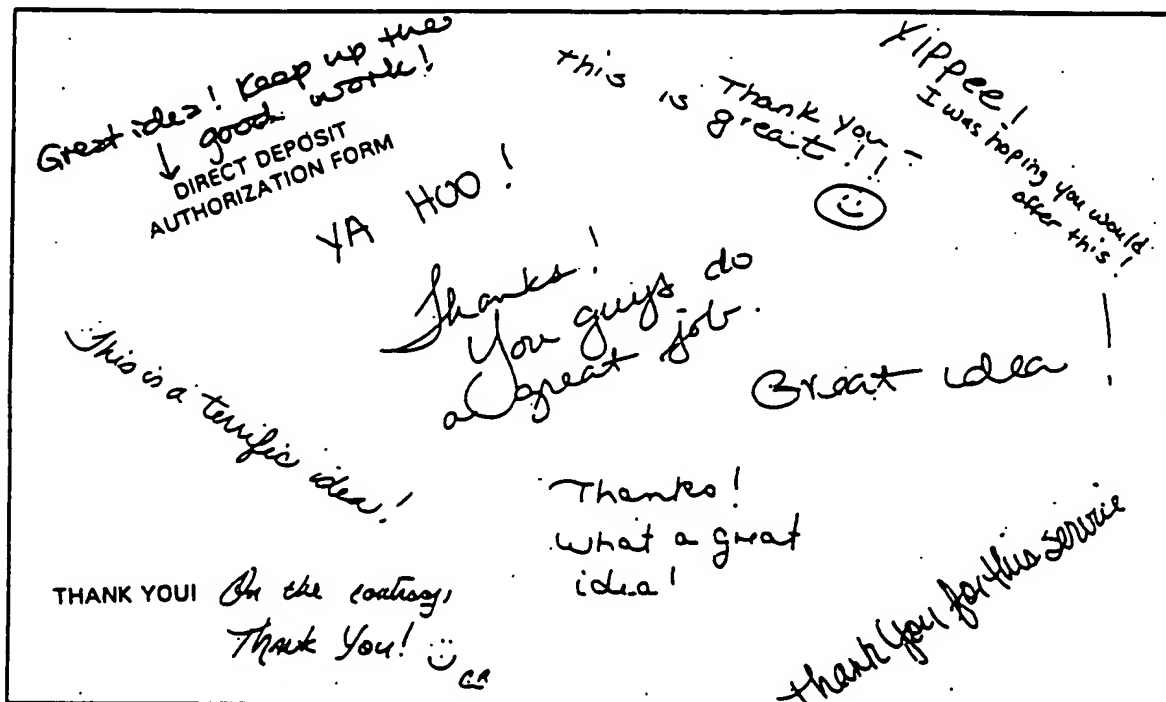 Great idea! Keep up the
good work!
DIRECT DEPOSIT
AUTHORIZATION FORM
this is great!!
Thank you -
Yippee!
I was hoping you would
offer this!
YA HOO!
Thanks!
You guys do
a great job.
This is a terrific idea!
Great idea!
Thanks!
what a great
idea!
THANK YOU! On the contrary,
Thank You!
CR
Thank you for this service